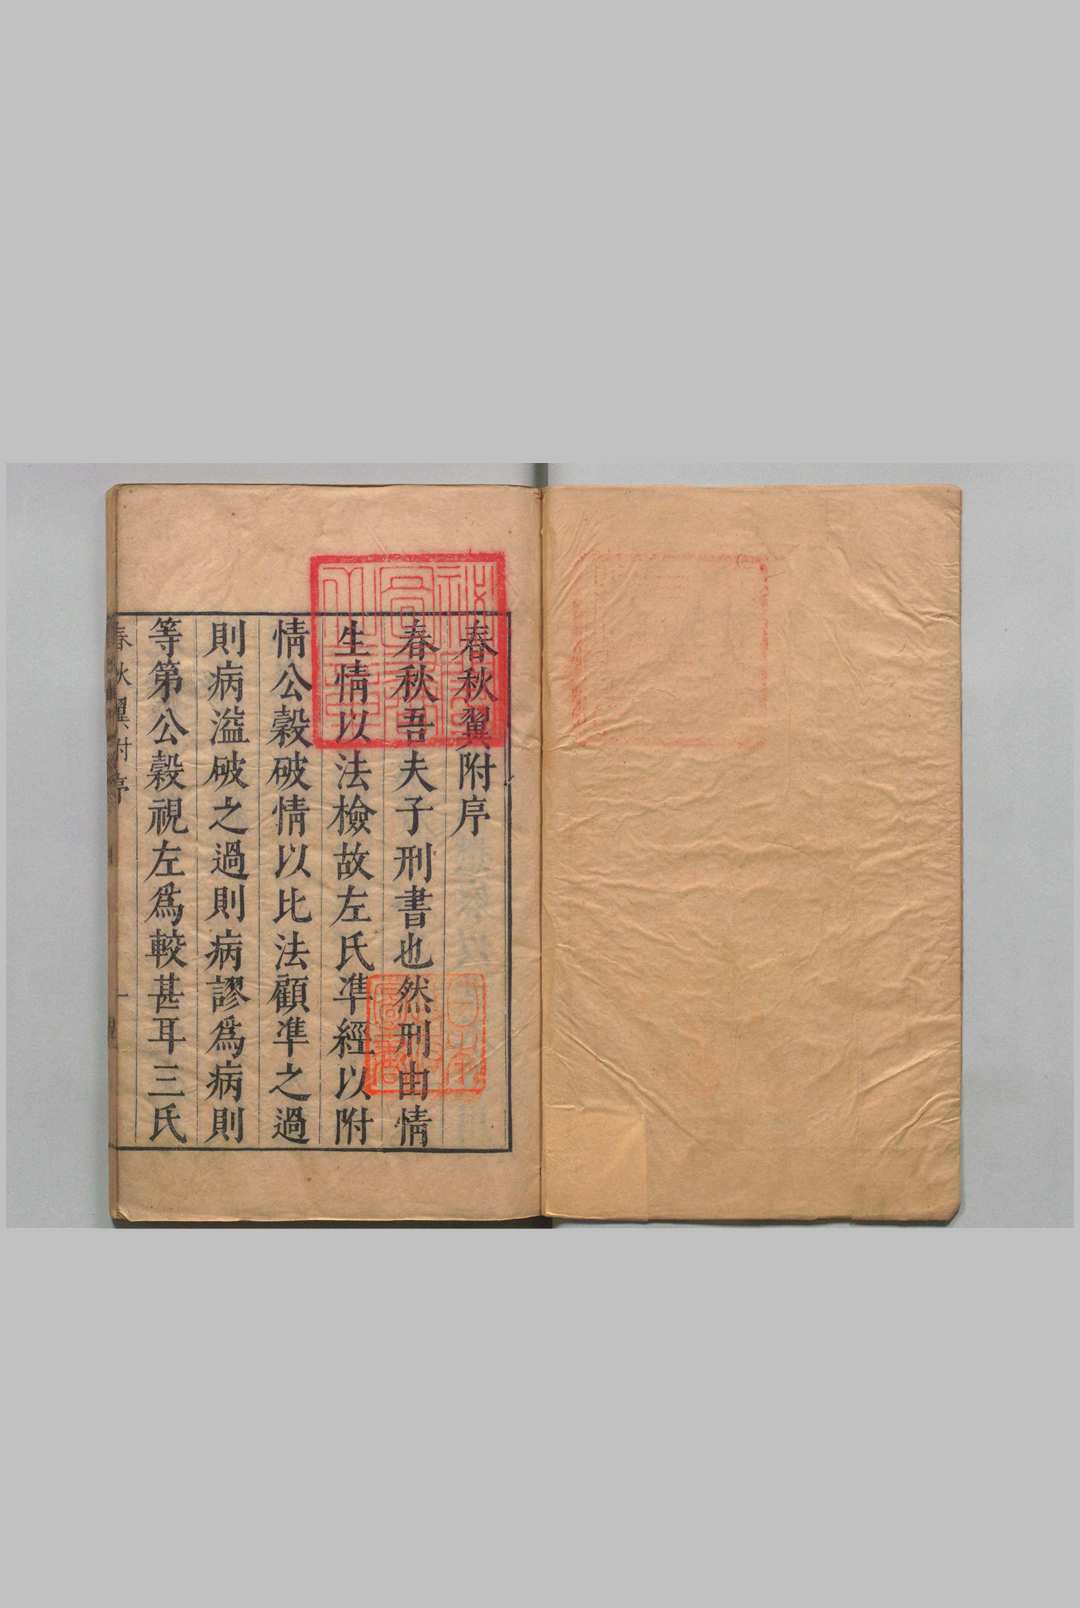 春秋翼附序
春秋吾夫子刑書也然刑由情
生情以法檢故左氏凖經以附
情公穀破情以比法顧凖之過
則病溢破之過則病謬爲病則
等第公穀視左爲較甚耳三氏
春秋翼附序
一